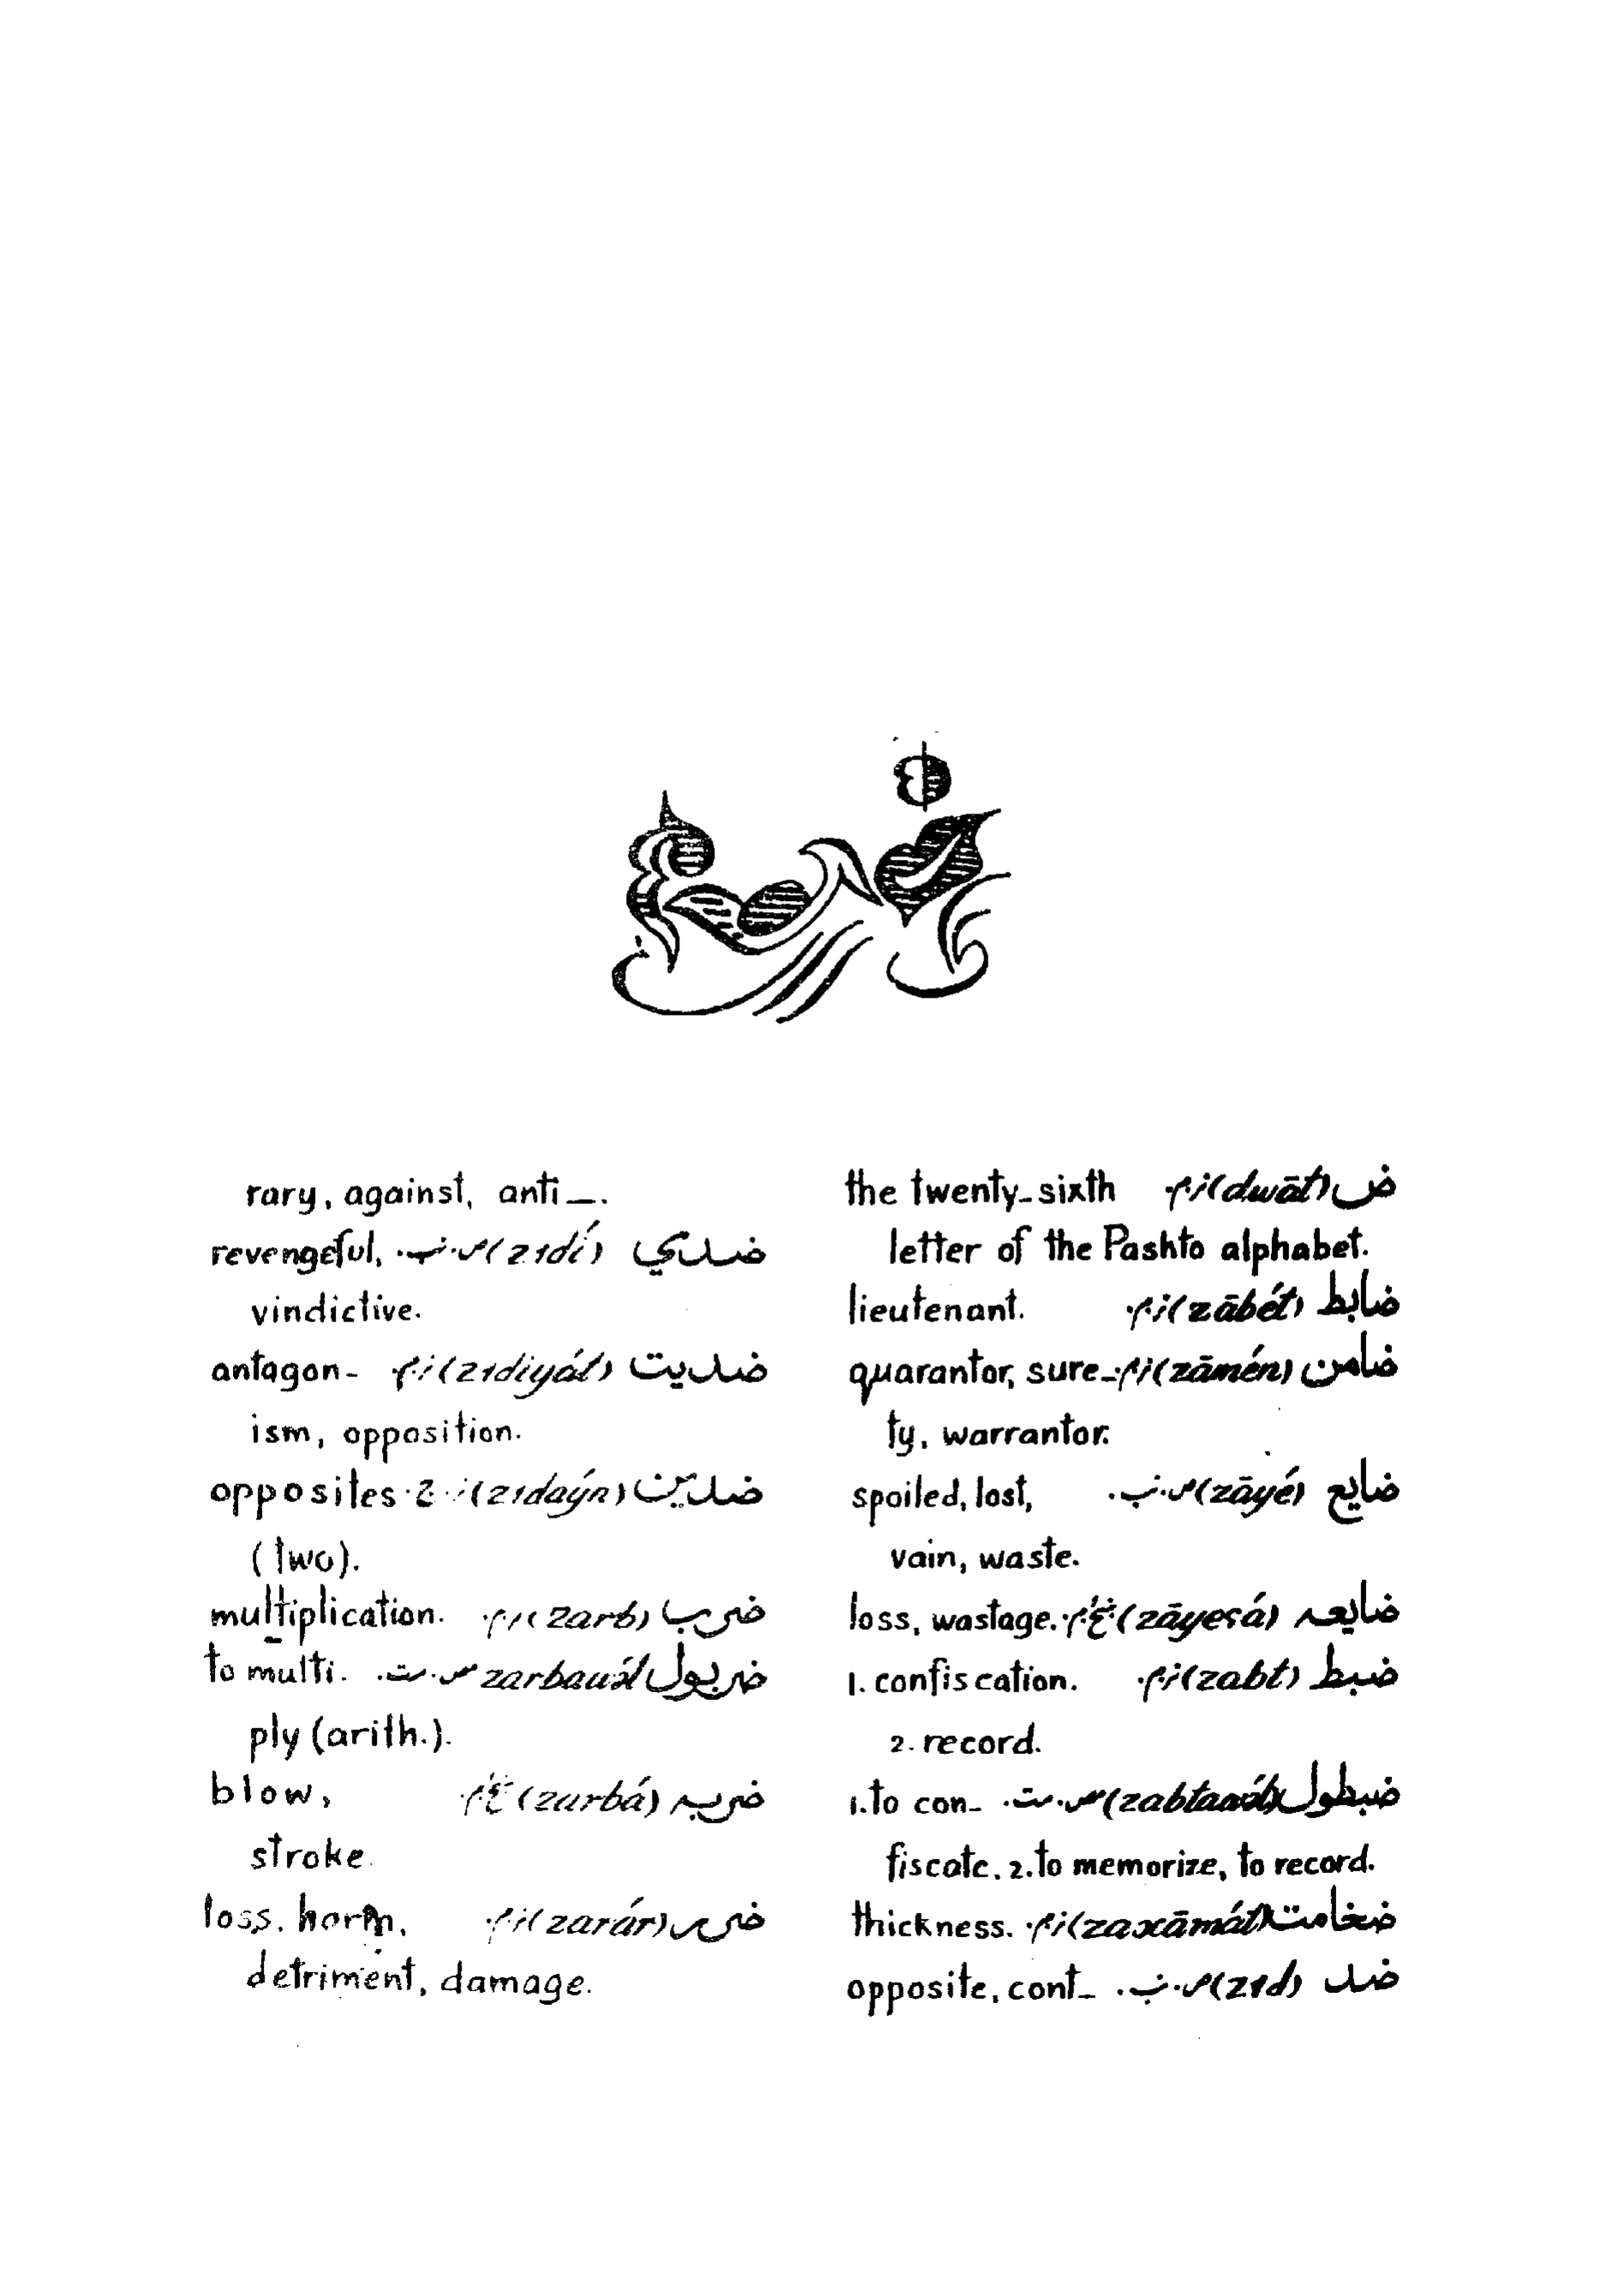 ض (dwāt) the twenty-sixth
letter of the Pashto alphabet.
ضابط (zābét) lieutenant.
ضامن (zāmén) quarantor, sure-
ty, warrantor.
ضايع (zāyé) spoiled, lost,
vain, waste.
ضايعه loss, wastage.
ضبط (zabt) 1. confiscation.
2. record.
ضبطول 1. to con-
fiscate. 2. to memorize, to record.
ضخامت (zaxāmát) thickness.
ضد (zɪd) opposite, cont-
rary, against, anti_.
ضدي (zɪdí) revengeful,
vindictive.
ضديت (zɪdiyát) antagon-
ism, opposition.
ضدين (zɪdayn) opposites
(two).
ضرب (zarb) multiplication.
ضربول to multi-
ply (arith.).
ضربه (zarbá) blow,
stroke.
ضرر (zarár) loss, harm,
detriment, damage.